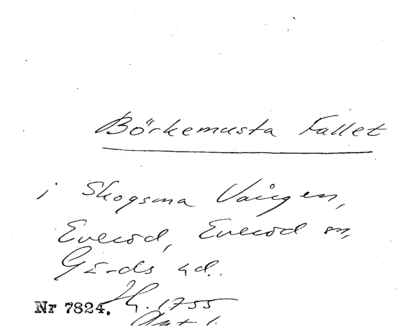 Börkemusta Fallet
i Skogsma Vången,
Everöd, Everöd sn,
Gärds hd.
Nr 7824. 1755
Akt 1.